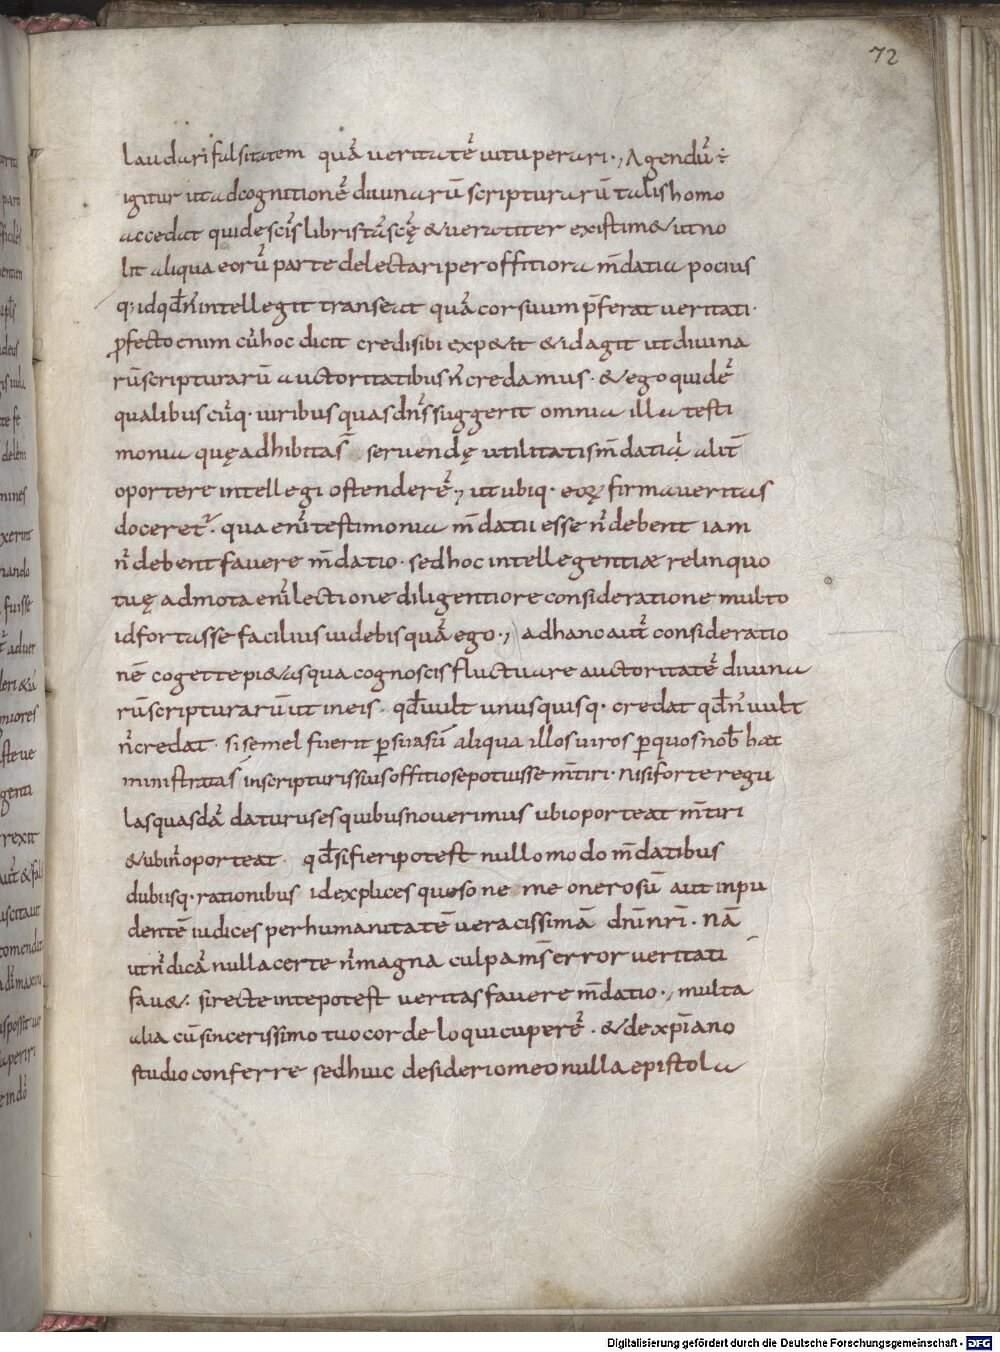 72
laudari falsitatem quā veritatē vituperari·, Agendū ÷
igitur ut adcognitionē divinarū scripturarū talis homo
accedat quidescīslibris tāscę &veraciter existim& utno
lit aliqua eorū parte delectari per offitiora m̄datia pocius
q; idqđn̄ intellegit transeat quā corsuum p̄ferat veritati·
p̱fecto enim cūhoc dicit credisibi exp&it &id agit ut divina
rū scripturarū auctoritatibus n̄ credamus· &ego quidē
qualibuscūq· viribus quas dn̄s suggerit omnia illa testi
monia quę adhibitas̄ servendę utilitatis m̄datiā alit̄
oportere intellegi ostenderē, ut ubiq· eoꝝ firma veritas
doceret̄· qua enī testimonia m̄datii esse n̄ debent iam
n̄ debent favere m̄datio· sed hoc intellegentiæ relinquo
tuę admota enī lectione diligentiore consideratione multo
id fortasse facilius videbis quā ego·, ad hanc aut̄ consideratio
nē coget te pi&as qua cognoscis fluctuare auctoritatē divina
rū scripturarū ut in eis qđ vult unusquisq· credat qđ n̄ vult
n̄ credat· si semel fuerit ꝑsuasū aliqua illos viros ꝑ quos nob̄ hæc
ministratas̄ inscripturis suis offitiose potuisse m̄tiri· nisi forte regu
las quasdā daturus es quibus noverimus ubi oporteat m̄tiri
&ubi n̄ oporteat· qđ si fieri potest nullo modo m̄datibus
dubiisq· rationibus id explices queso ne me onerosū aut inpu
dentē iudices per humanitatē veracissimā dn̄i nr̄i· nā
ut n̄ dicā nulla certe n̄ magna culpa m̄s error veritati
fav&: si recte in te potest veritas favere m̄datio·, multa
alia cū sincerissimo tuo corde loqui cuperē· &de xp̄iano
studio conferre sed huic desiderio meo nulla epistola
Digitalisierung gefördert durch die Deutsche Forschungsgemeinschaft - DFG